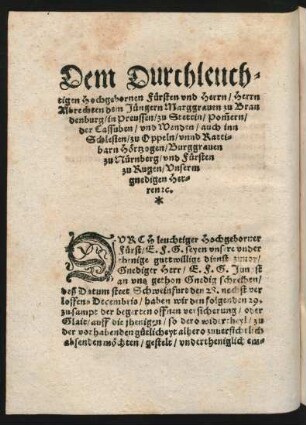 Dem Durchleuch-
tigen Hochgebornen Fürsten vnd Herrn / Herrn
Albrechten dem Jüngern Marggrauen zu Bran
denburg / in Preussen / zu Stettin / Pomern /
der Cassuben / vnd Wenden / auch inn
Schlesien / zu Oppeln / vnnd Ratti-
barn Hörtzogen / Burggrauen
zu Nürnberg / vnd Fürsten
zu Rugen / Vnserm
gnedigen Her-
ren ꝛc.
*
DVRCH leuchtiger Hochgeborner
Fürst / E. F. G. seyen vnsere vnder
thenige gutwillige dienst zuuor /
Gnediger Herr / E. F. G. Jun ist
an vns gethon Gnedig schreiben /
deß Datum steet Schweinfurt den 28. nechst ver
loffens Decembris / haben wir den folgenden 29.
zusampt der begerten offnen versicherung / oder
Glait / auff die jhenigen / so dero widertheyl / zu
der vorhabenden gütlicheyt alhero zuuersichtlich
absenden möchten / gestelt / vndertheniglich em-